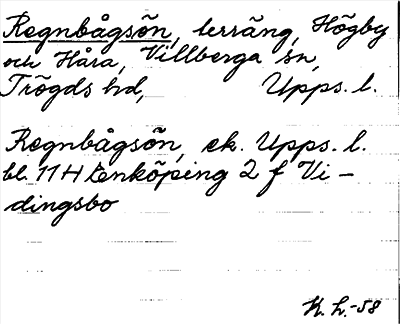 Regnbågsön, terräng, Högby
och Håra, Villberga sn,
Trögds hd, Upps. l.
Regnbågsön, ek. Upps. l.
bl. 11H Enköping 2 f Vi-
dingsbo
K. L.-58